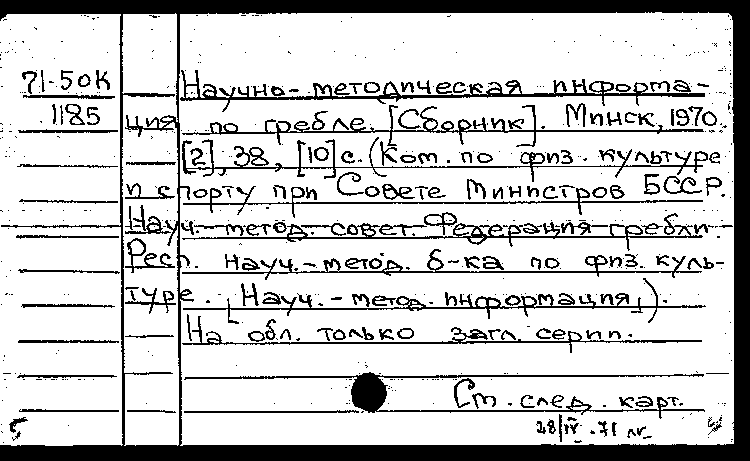 71-50К Научно-методическая информа-
1185 ция по гребле. [Сборник]. Минск, 1970.
[2], 38, [10] с. (Ком. по физ. культуре
и спорту при Совете Министров БССР.
Науч.-метод. совет Федерация гребли.
Респ. науч.-метод. б-ка по физ. куль-
туре. [Науч.-метод. информация]).
На обл. только загл. серии.
См. след. карт.
5 28/IV.-71